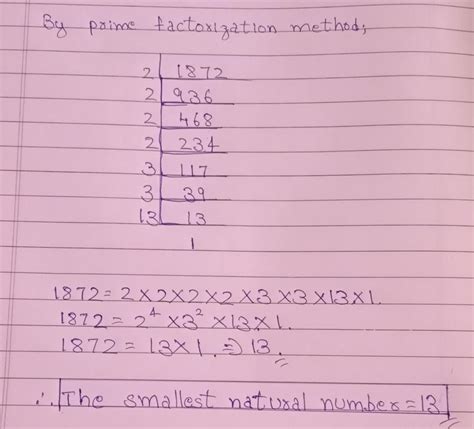 By prime factorization method,
2 1872
2 936
2 468
2 234
3 117
3 39
13 13
1
1872 = 2×2×2×2×3×3×13×1.
1872 = 2⁴ ×3² ×13×1.
1872 = 13×1. ⇒ 13.
∴ The smallest natural number = 13